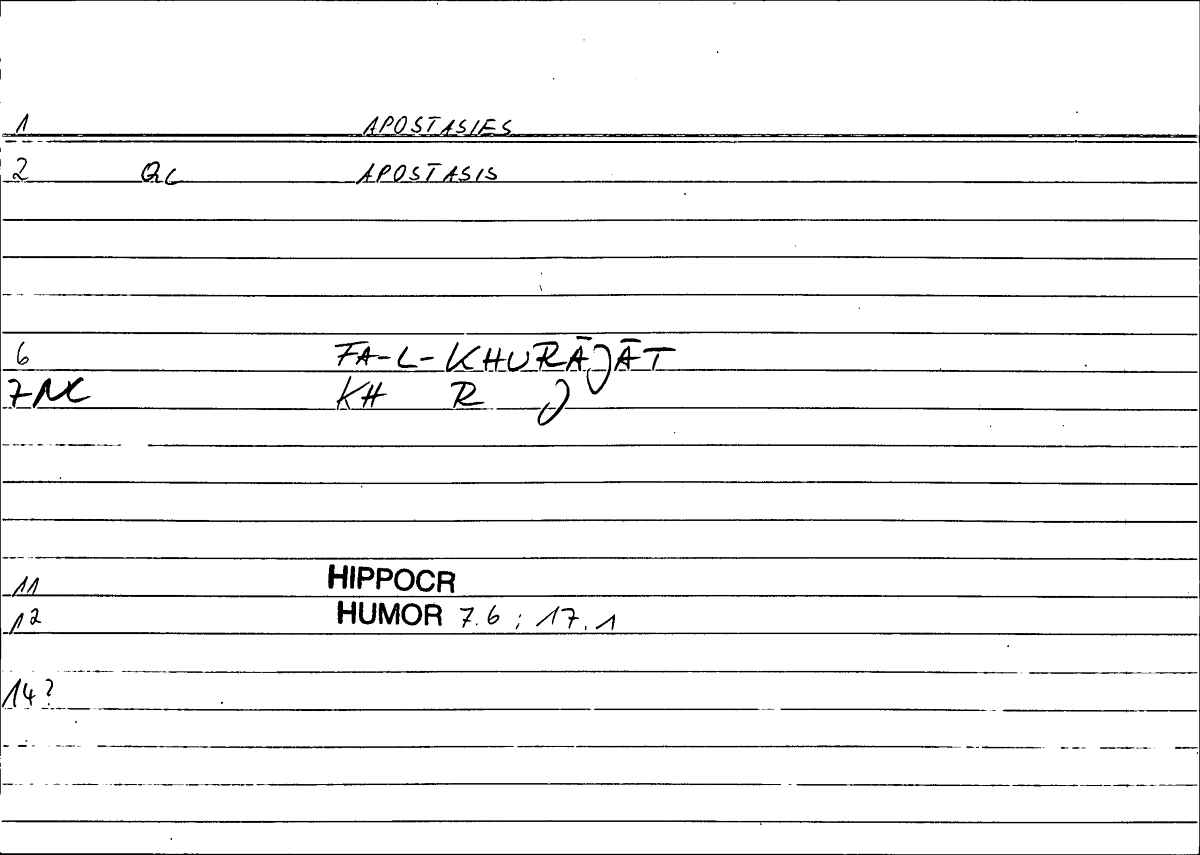 1 APOSTASIES
2 QC APOSTASIS
6 FA-L-KHURĀJĀT
7NC KH R J
11 HIPPOCR
12 HUMOR 7.6 ; 17.1
14?